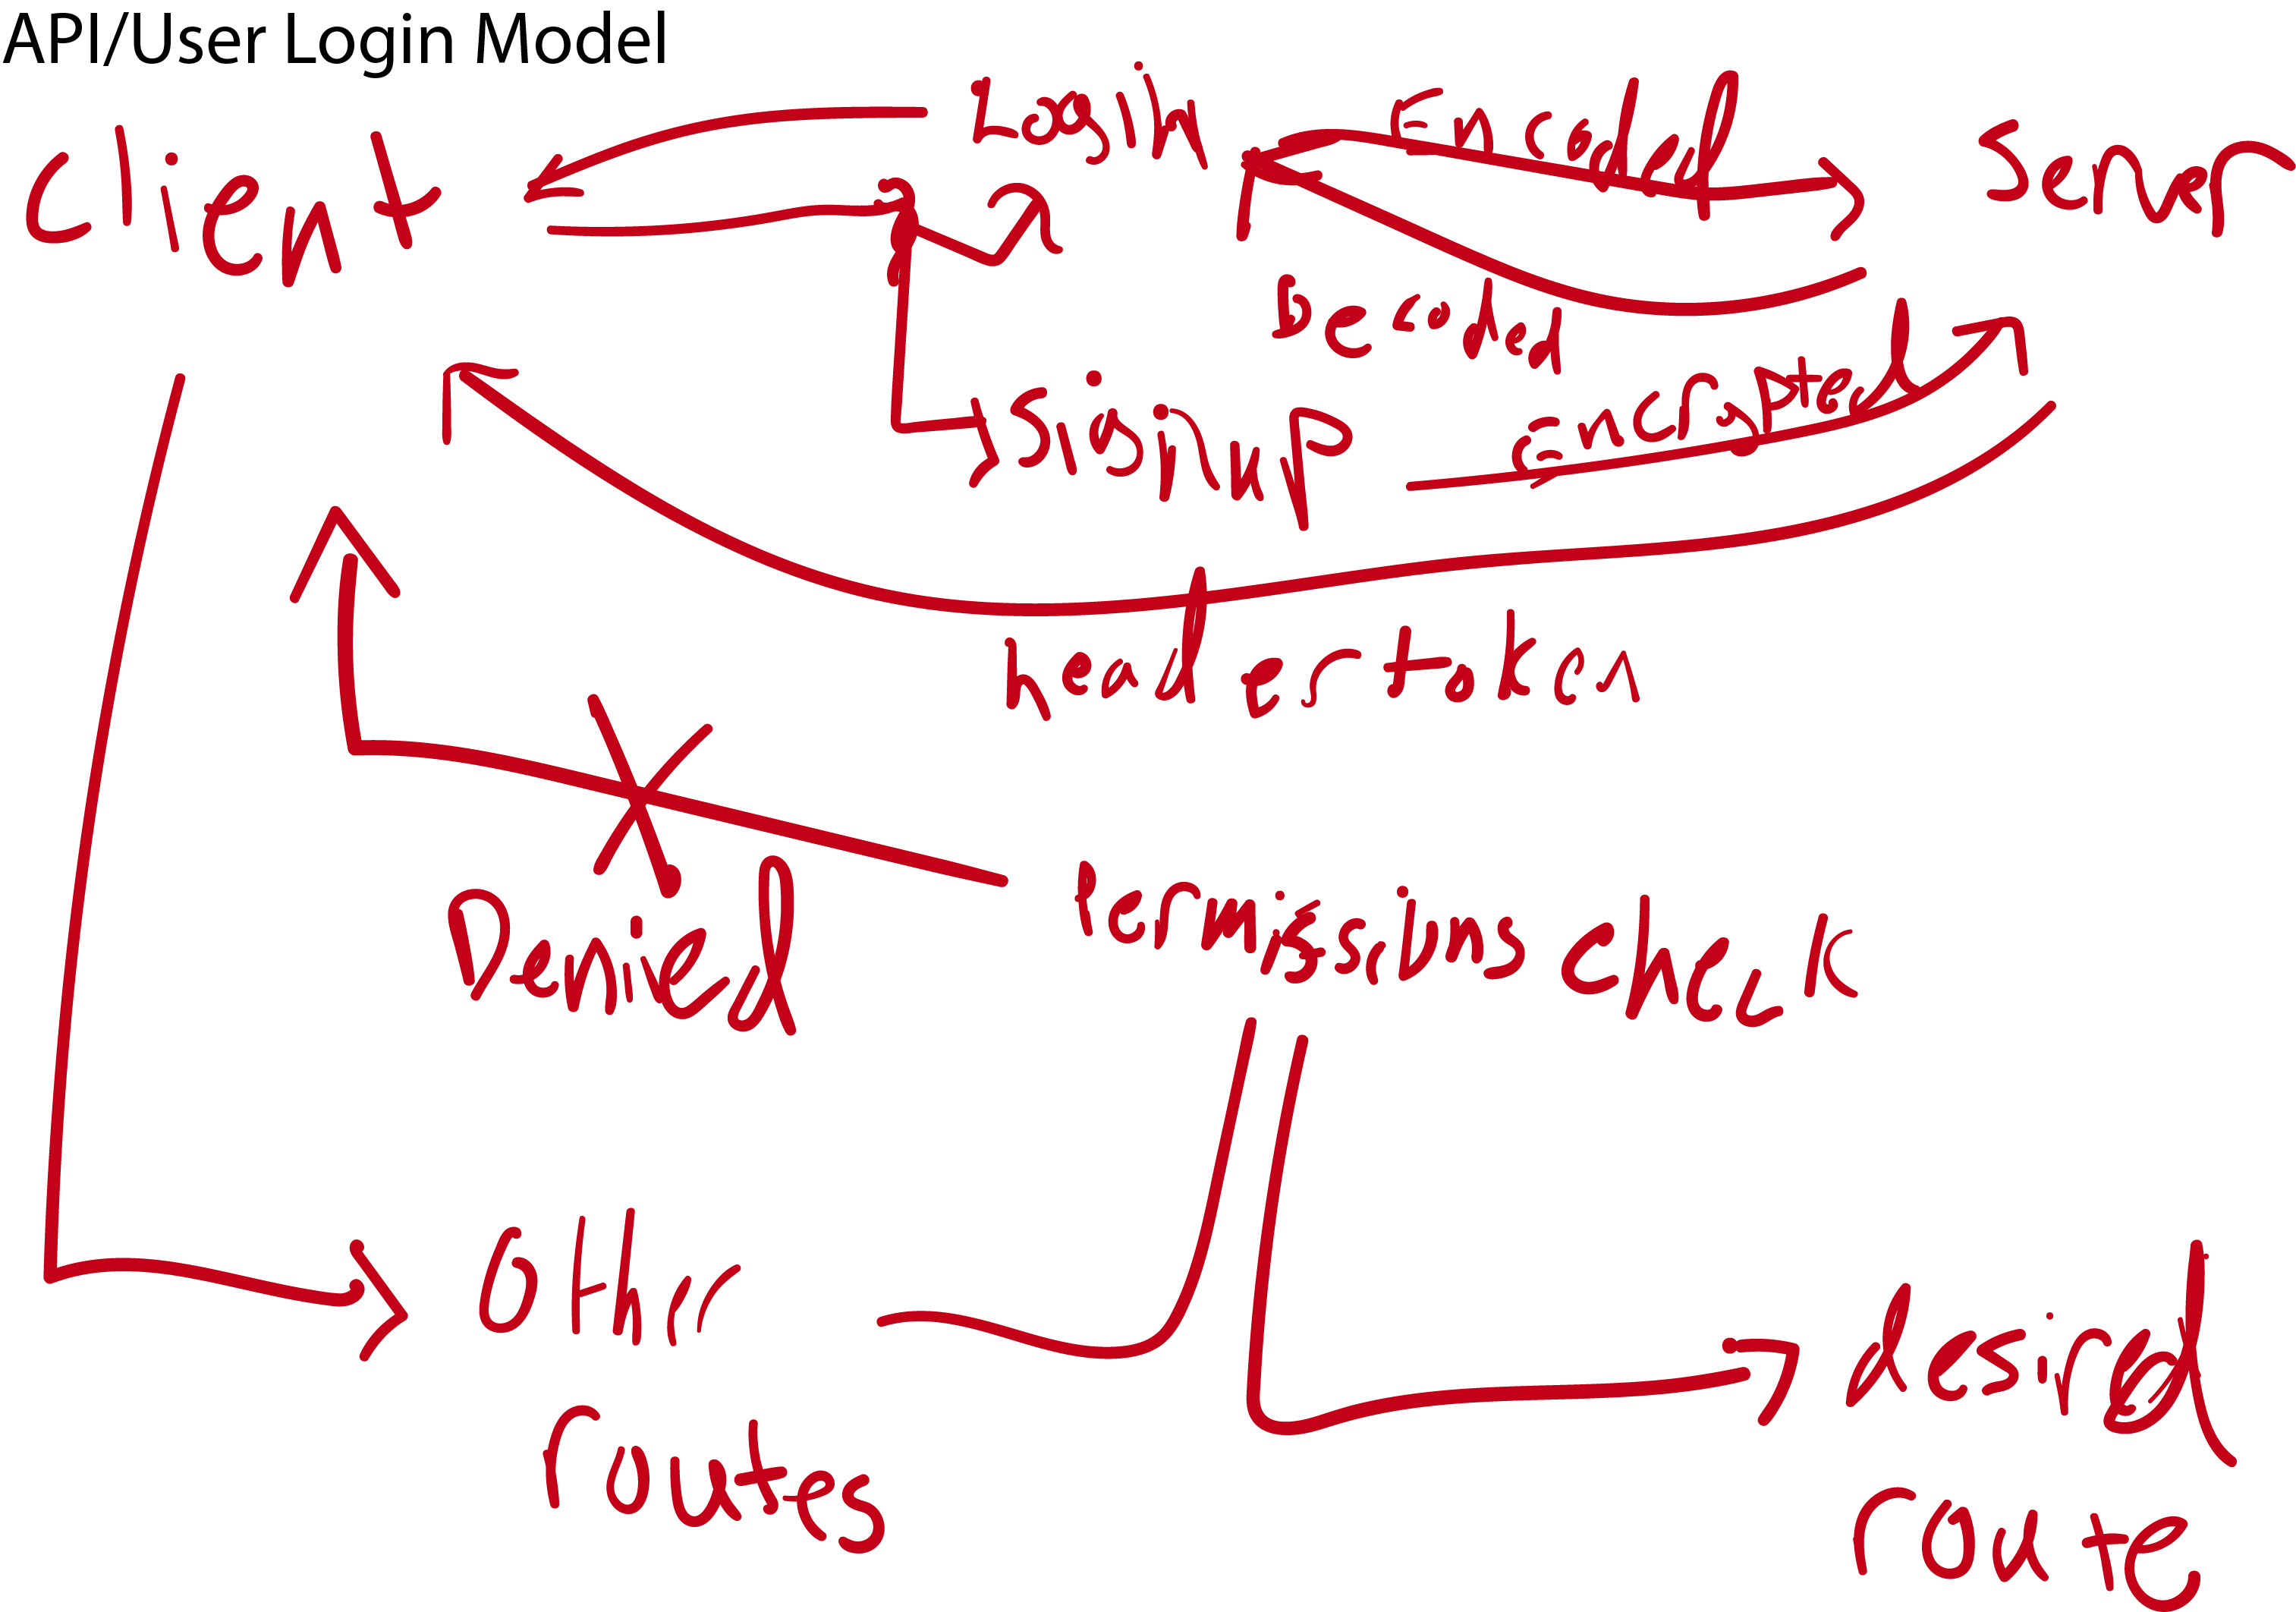 API/User Login Model
Client
Login
Encoded
Server
Decoded
Signup
Encrypted
header token
Denied
Permissions check
Other
routes
desired
route